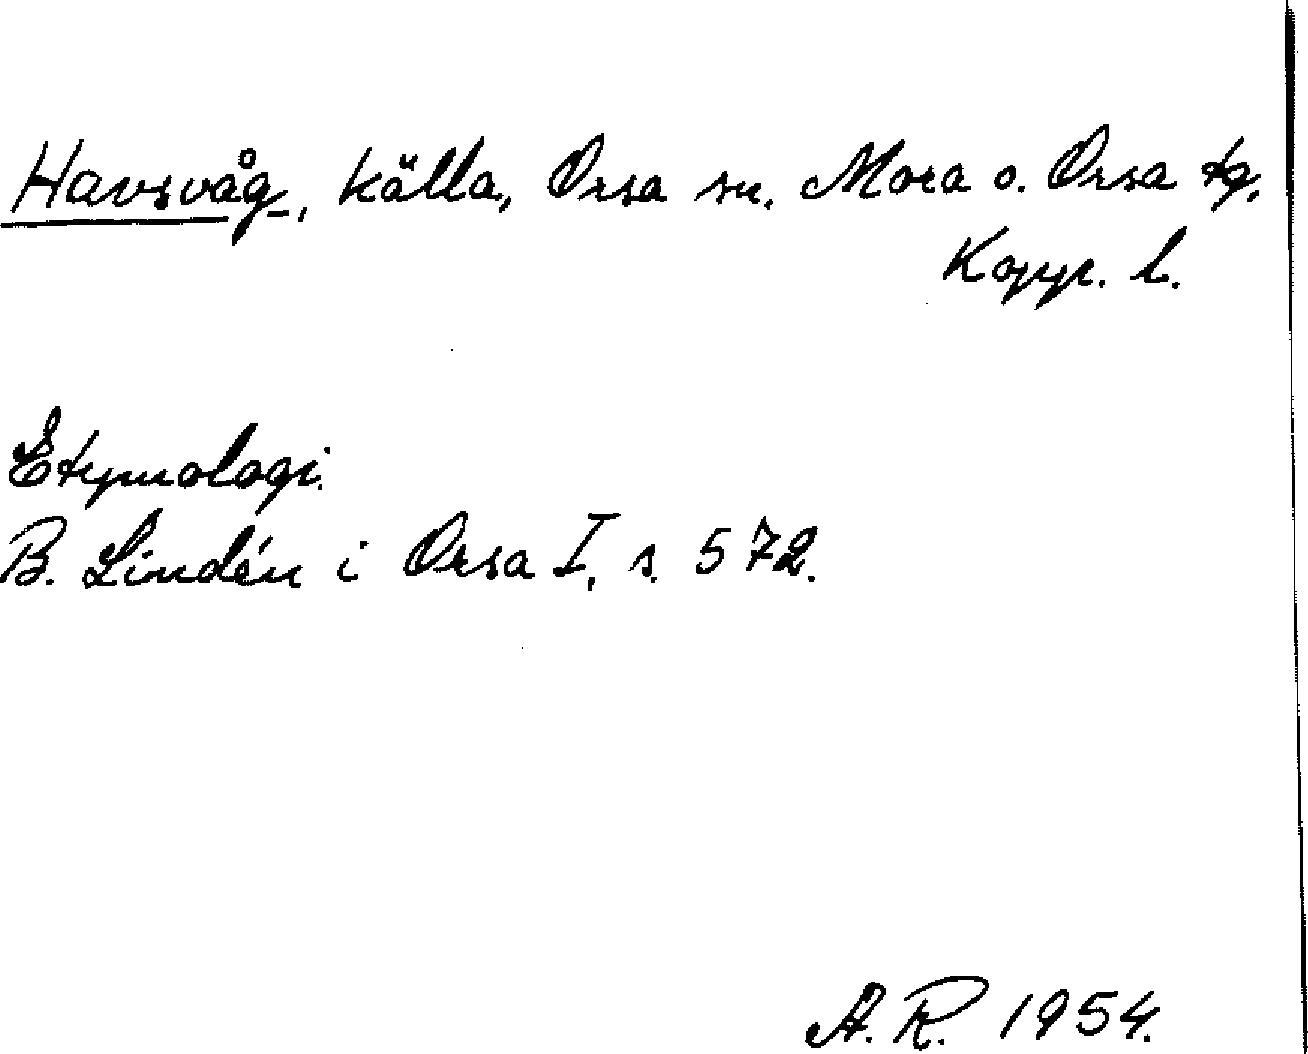 Havsvåg, källa, Orsa sn. Mora o. Orsa tg.
Kopp. l.
Etymologi.
B. Lindén i Orsa I, s. 572.
A.R. 1954.